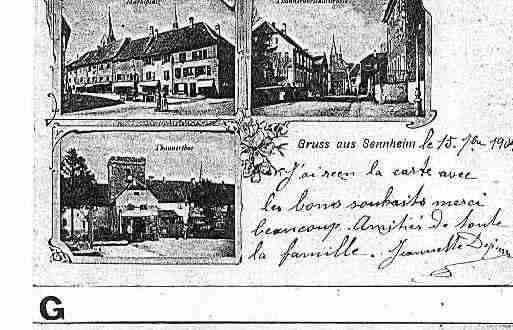 Marktplatz
Thannerthor
Gruss aus Sennheim le 15. 7bre
J'ai reçu la carte avec
les bons souhaits merci
beaucoup. Amitiés de toute
la famille. Jeannette
G